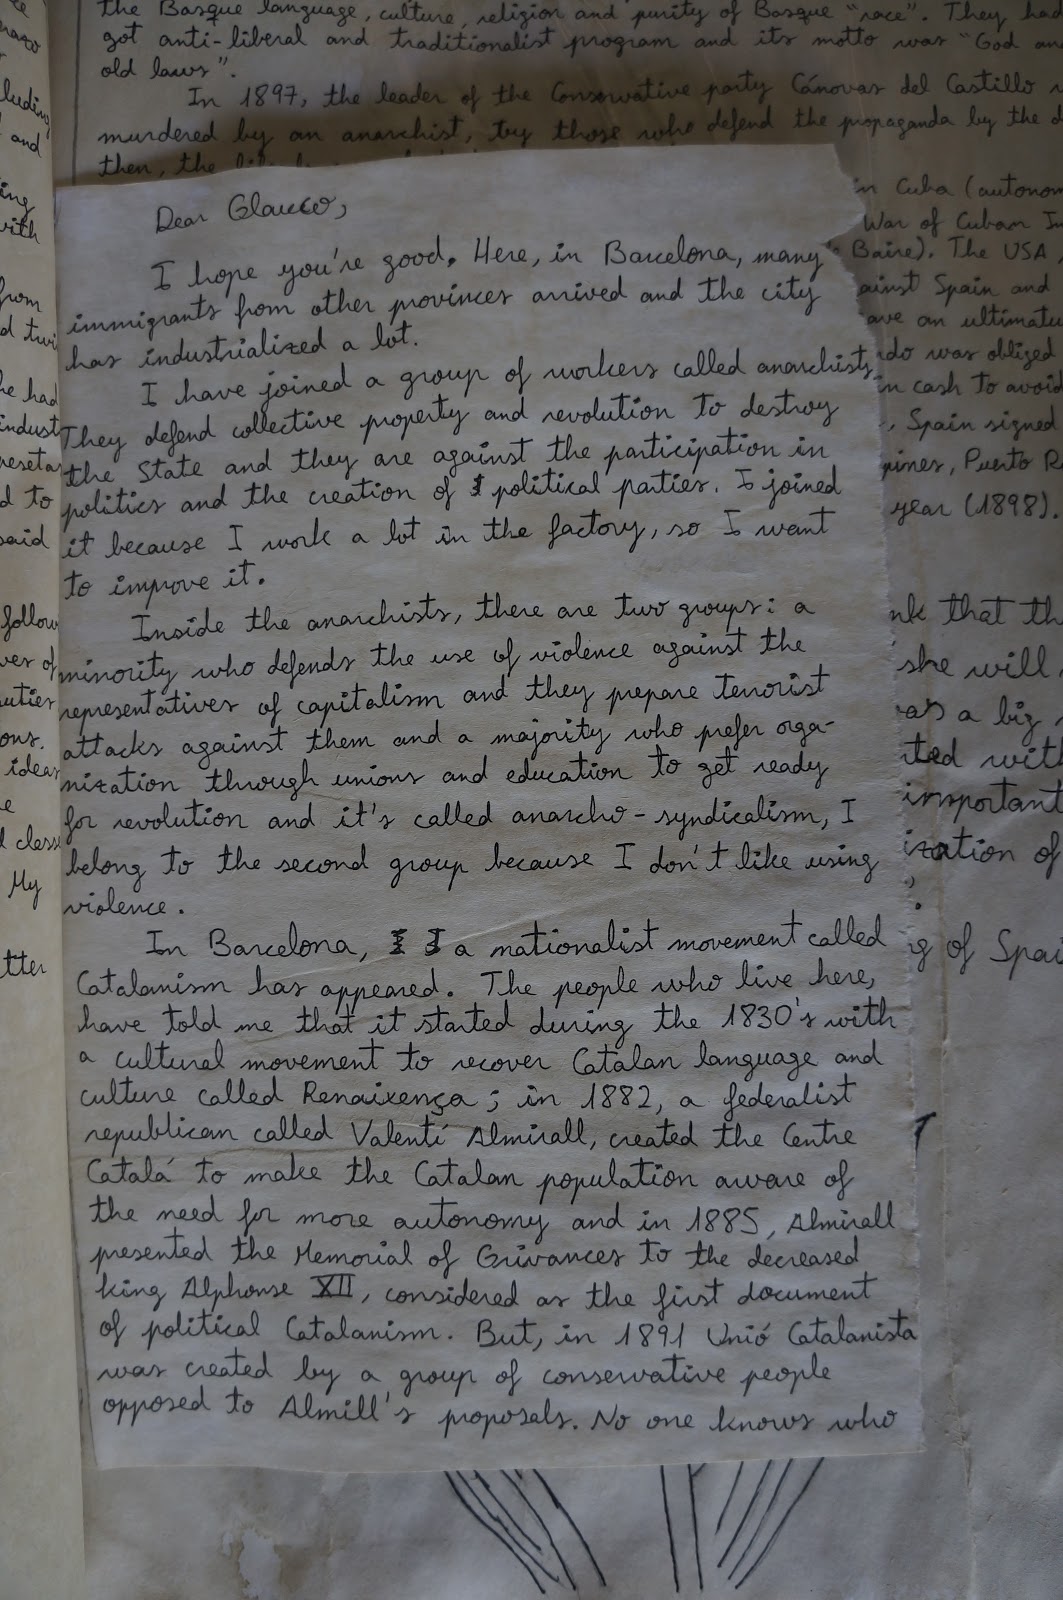 the Basque language, culture, religion and purity of Basque "race". They had
got anti-liberal and traditionalist program and its motto was "God and
old laws".
In 1897, the leader of the Conservative party Cánovas del Castillo
murdered by an anarchist, by those who defend the propaganda by the
then, the
Dear Glauco,
I hope you're good. Here, in Barcelona, many
immigrants from other provinces arrived and the city
has industrialized a lot.
I have joined a group of workers called anarchists
They defend collective property and revolution to destroy
the State and they are against the participation in
politics and the creation of political parties. I joined
it because I work a lot in the factory, so I want
to improve it.
Inside the anarchists, there are two groups: a
minority who defends the use of violence against the
representatives of capitalism and they prepare terrorist
attacks against them and a majority who prefer orga-
nization through unions and education to get ready
for revolution and it's called anarcho-syndicalism, I
belong to the second group because I don't like using
violence.
In Barcelona, a nationalist movement called
Catalanism has appeared. The people who live here,
have told me that it started during the 1830's with
a cultural movement to recover Catalan language and
culture called Renaixença; in 1882, a federalist
republican called Valentí Almirall, created the Centre
Catalá to make the Catalan population aware of
the need for more autonomy and in 1885, Almirall
presented the Memorial of Grivances to the decreased
king Alphonse XII, considered as the first document
of political Catalanism. But, in 1891 Unió Catalanista
was created by a group of conservative people
opposed to Almill's proposals. No one knows who
in Cuba (autonom
War of Cuban In
Baire). The USA,
ainst Spain and
ave an ultimatu
do was obliged
in cash to avoid
, Spain signed
pines, Puerto R
year (1898).
nk that th
she will
as a big
ted with
important
ization of
g of Spai
and
with
from
he had
indust
d to
said
follow
ves of
ons.
ideas
d class
My
tter